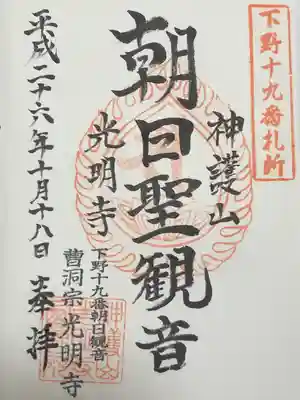 下野十九番札所
神護山
朝日聖観音
光明寺
下野十九番朝日観音
曹洞宗光明寺
平成二十六年十月十八日 奉拝